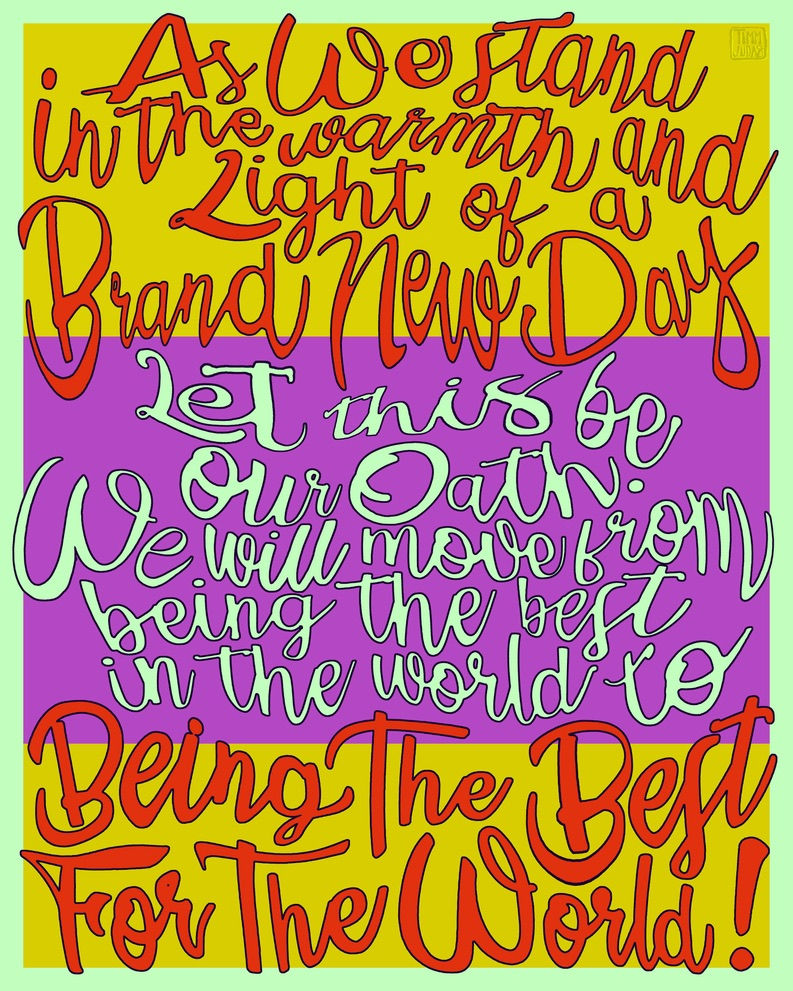 TIMM
JUDAS
As We stand
in the warmth and
Light of a
Brand New Day
Let this be
our Oath.
We will move from
being the best
in the world to
Being The Best
For The World!